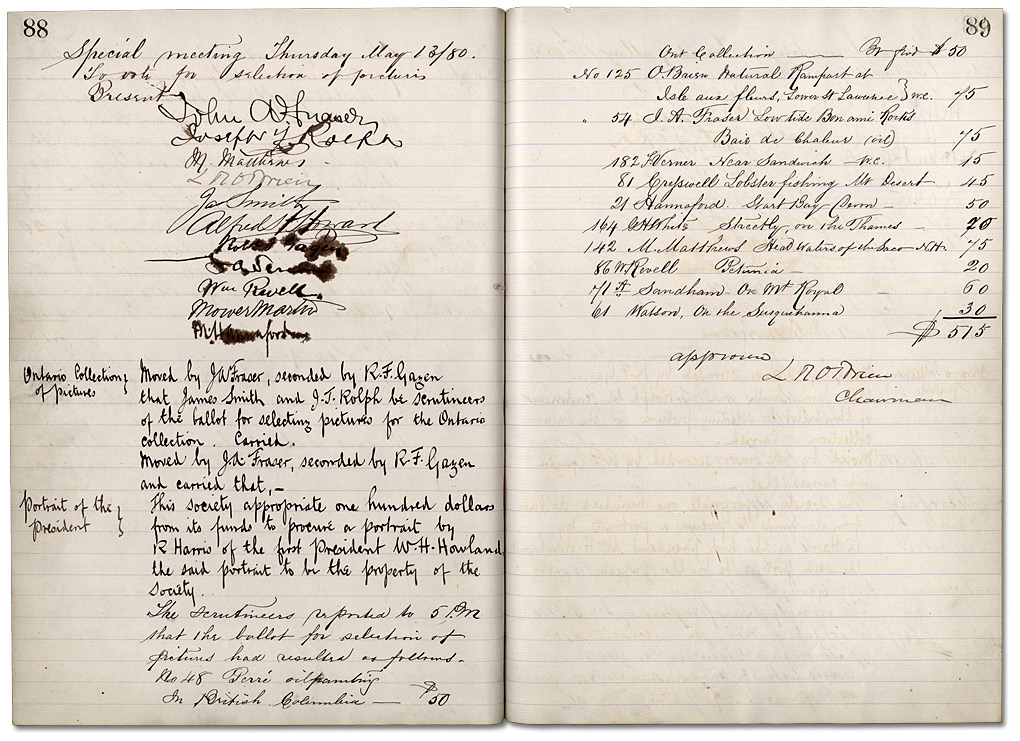 88
Special meeting Thursday May 13/80.
To vote for selection of pictures
Present
John A Fraser
Joseph T Rolph
M. Matthews
L R O'Brien
Jas Smith
Alfred H Howard
Robt F Gagen
F. A. Verner
Wm Revell
Mower Martin
M Hannaford
Ontario Collection
of pictures
Moved by J A Fraser, seconded by R. F. Gagen
that James Smith and J. T. Rolph be scrutineers
of the ballot for selecting pictures for the Ontario
collection. Carried.
Moved by J. A Fraser, seconded by R. F. Gagen
and carried that, —
Portrait of the
President
This society appropriate one hundred dollars
from its funds to procure a portrait by
R Harris of the first President W. H. Howland
the said portrait to be the property of the
Society.
The Scrutineers reported to 5 P.M
that the ballot for selection of
pictures had resulted as follows.
No 48 Perré oil painting
In British Columbia — $50
89
Ont Collection — Br ford $ 50
No 125 O.Brien Natural Rampart at
Isle aux fleurs, Lower St Lawrence } w.c. 75
" 54 J. A. Fraser Low tide Bon ami Rocks
Baie de Chaleur (oil) 75
182 F. Verner Near Sandwich — w.c. 15
81 Cresswell Lobster fishing Mt Desert 45
21 Hannaford. Start Bay Devon — 50
164 G H White Streetly, on the Thames — 20
142 M. Matthews Head waters of the Saco N.H. 75
86 W. Revell Petunia — 20
71 A Sandham On Mt Royal — 60
61 Watson, On the Susquehanna 30
$ 515
approved
L R O'Brien
Chairman